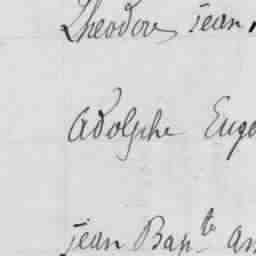 Theodore jean
Adolphe Euge
jean Bapte an